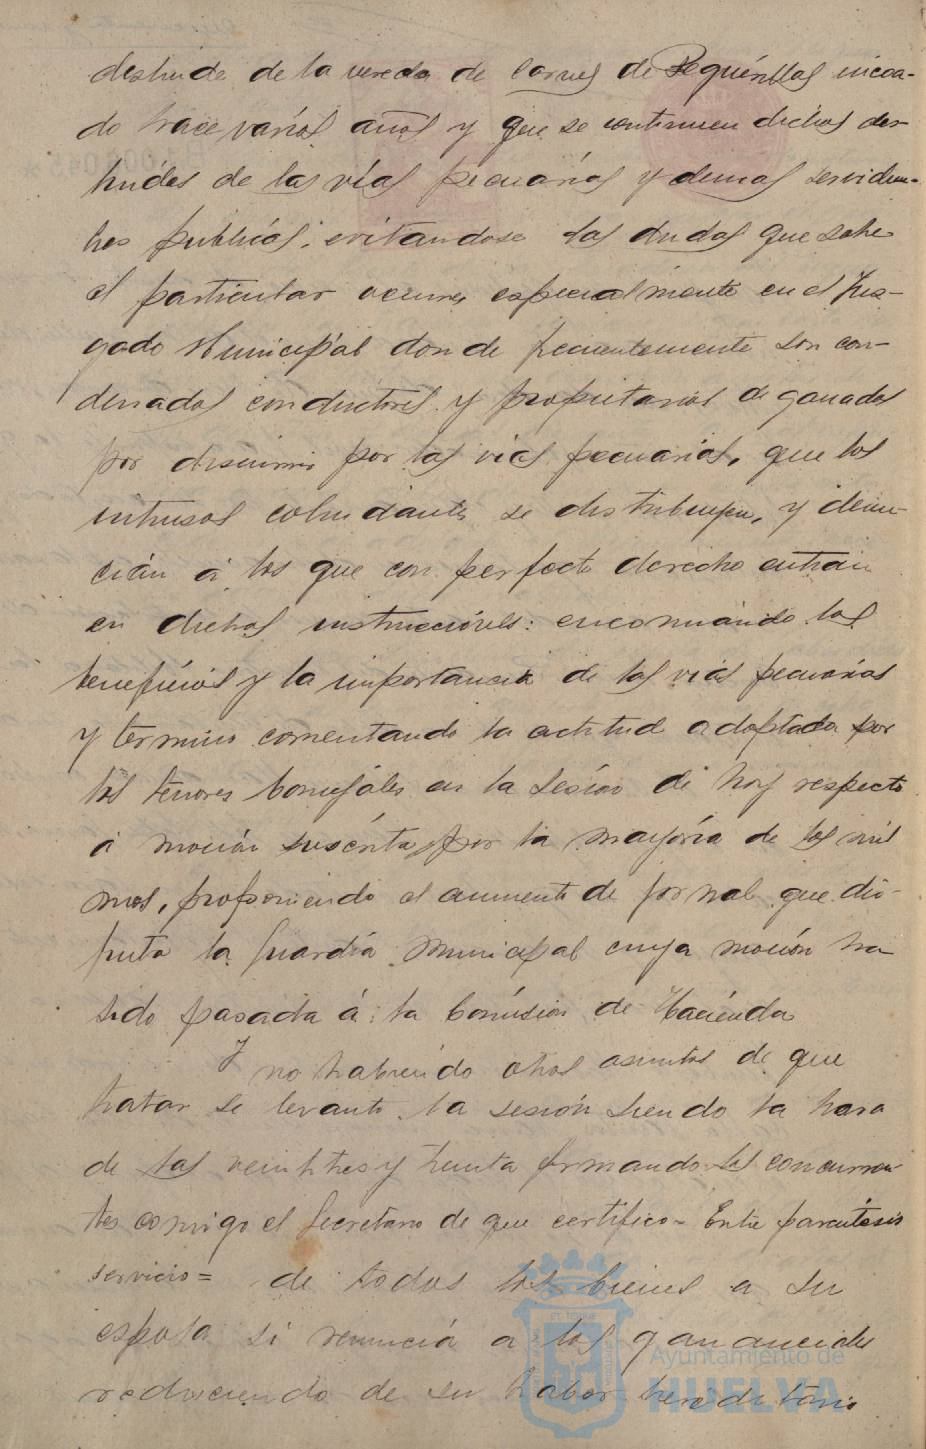 deslinde de la vereda de carnes de Peguerillas incoa-
do hace varios años y que se continuen dichos des-
lindes de las vías pecuarias y demas servidum-
bres publicas, evitandose las dudas que sobre
el particular ocurren especialmente en el Juz-
gado Municipal donde frecuentemente son con-
denados conductores y propietarios de ganados
por discurrir por las vias pecuarias, que los
intrusos colindantes se distribuyen, y denun-
cian á los que con perfecto derecho entran
en dichas instrucciónes: encomiando los
beneficios y la importancia de las vias pecuarias
y termino comentando la actitud adoptada por
los señores Concejales en la sesion de hoy respecto
á moción suscrita por la mayoría de los mis
mos, proponiendo el aumento de jornal que dis-
fruta la Guardia Municipal cuya moción ha
sido pasada á la Comision de Hacienda
Y no habiendo otros asuntos de que
tratar se levantó la sesión siendo la hora
de las veintitres y treinta firmando los concurren-
tes conmigo el Secretario de que certifico = Entre parentesis
servicio = de todos los bienes a su
esposa si renuncia a los gananciales
reduciendo de su haber hereditario
Ayuntamiento de
HUELVA